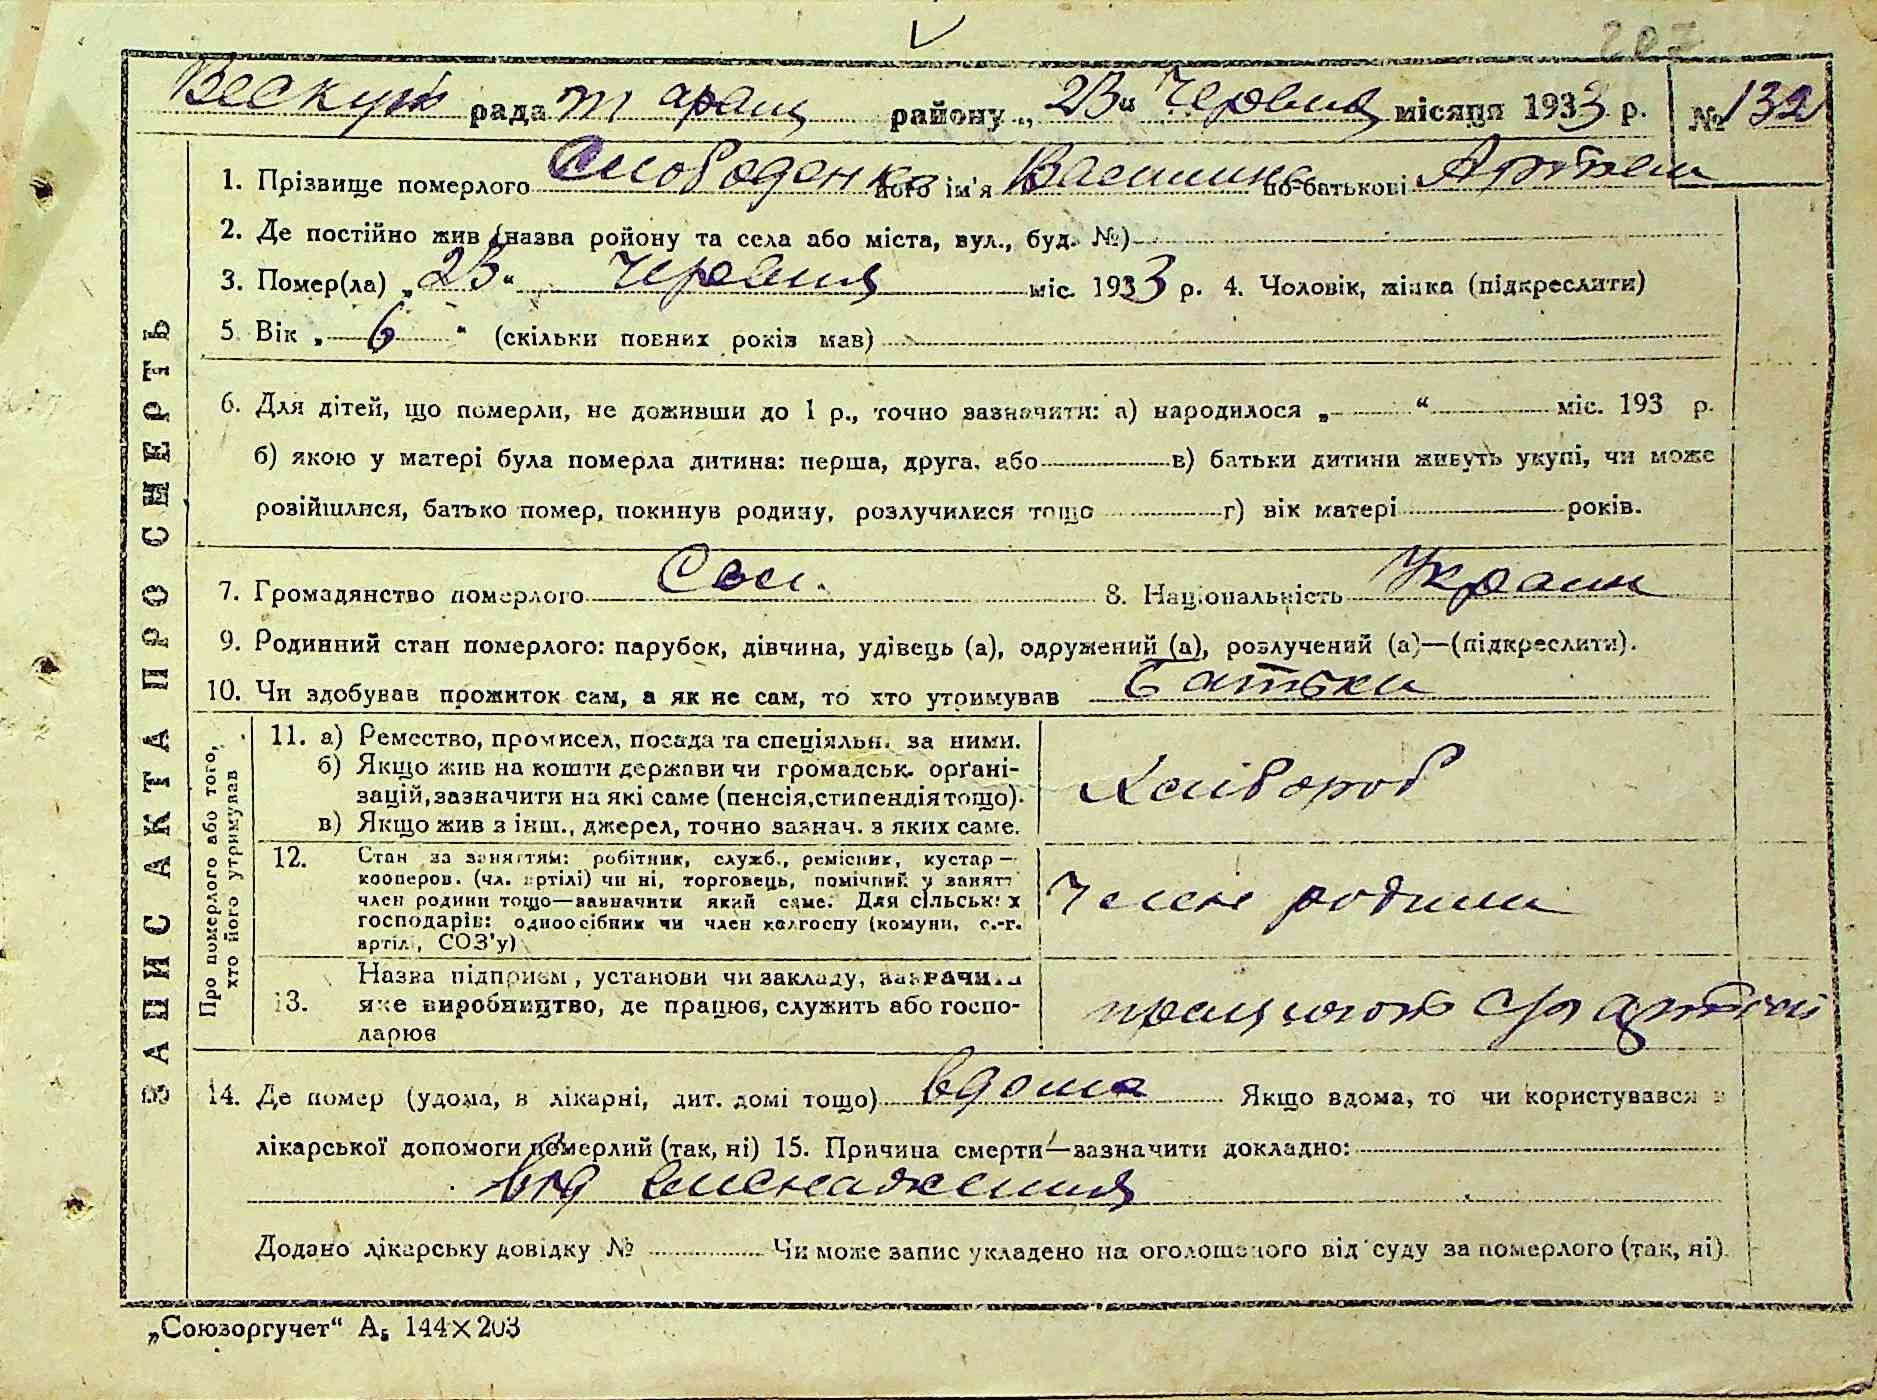 203
Вескуй рада Таращ району „23" Червня місяця 1933 р. № 132
1. Прізвище померлого Слободенко його ім'я Василина по-батькові Артем
2. Де постійно жив (назва ройону та села або міста, вул., буд. №)
3. Помер(ла) „23" Червня міс. 1933 р. 4. Чоловік, жінка (підкреслити)
5. Вік „6" (скільки повних років мав)
6. Для дітей, що померли, не доживши до 1 р., точно зазначити: а) народилося „ " міс. 193 р.
б) якою у матері була померла дитина: перша, друга, або в) батьки дитини живуть укупі, чи може
розійшлися, батько помер, покинув родину, розлучилися тощо г) вік матері років.
7. Громадянство померлого Сел. 8. Національність Украин
9. Родинний стан померлого: парубок, дівчина, удівець (а), одружений (а), розлучений (а)—(підкреслити).
10. Чи здобував прожиток сам, а як не сам, то хто утримував батьки
11. а) Ремество, промисел, посада та спеціяльн. за ними.
б) Якщо жив на кошти держави чи громадськ. орґані-
зацій, зазначити на які саме (пенсія, стипендія тощо).
в) Якщо жив з інш., джерел, точно зазнач. з яких саме.
Хлібороб
12. Стан за заняттям: робітник, служб., ремісник, кустар—
кооперов. (чл. артілі) чи ні, торговець, помічний у занятт
член родини тощо—зазначити який саме. Для сільськ х
господарів: одноосібник чи член колгоспу (комуни, с.-г.
артіл, СОЗ'у)
Член родини
13. Назва підприєм, установи чи закладу, зазначи
яке виробництво, де працює, служить або госпо-
дарює
працюють с/г артілі
14. Де помер (удома, в лікарні, дит. домі тощо) вдома Якщо вдома, то чи користувався в
лікарської допомоги померлий (так, ні) 15. Причина смерти—зазначити докладно:
від виснаження
Додано лікарську довідку № Чи може запис укладено на оголошеного від суду за померлого (так, ні).
„Союзоргучет" А5 144×203
ЗАПИС АКТА ПРО СМЕРТЬ
Про померлого або того,
хто його утримував